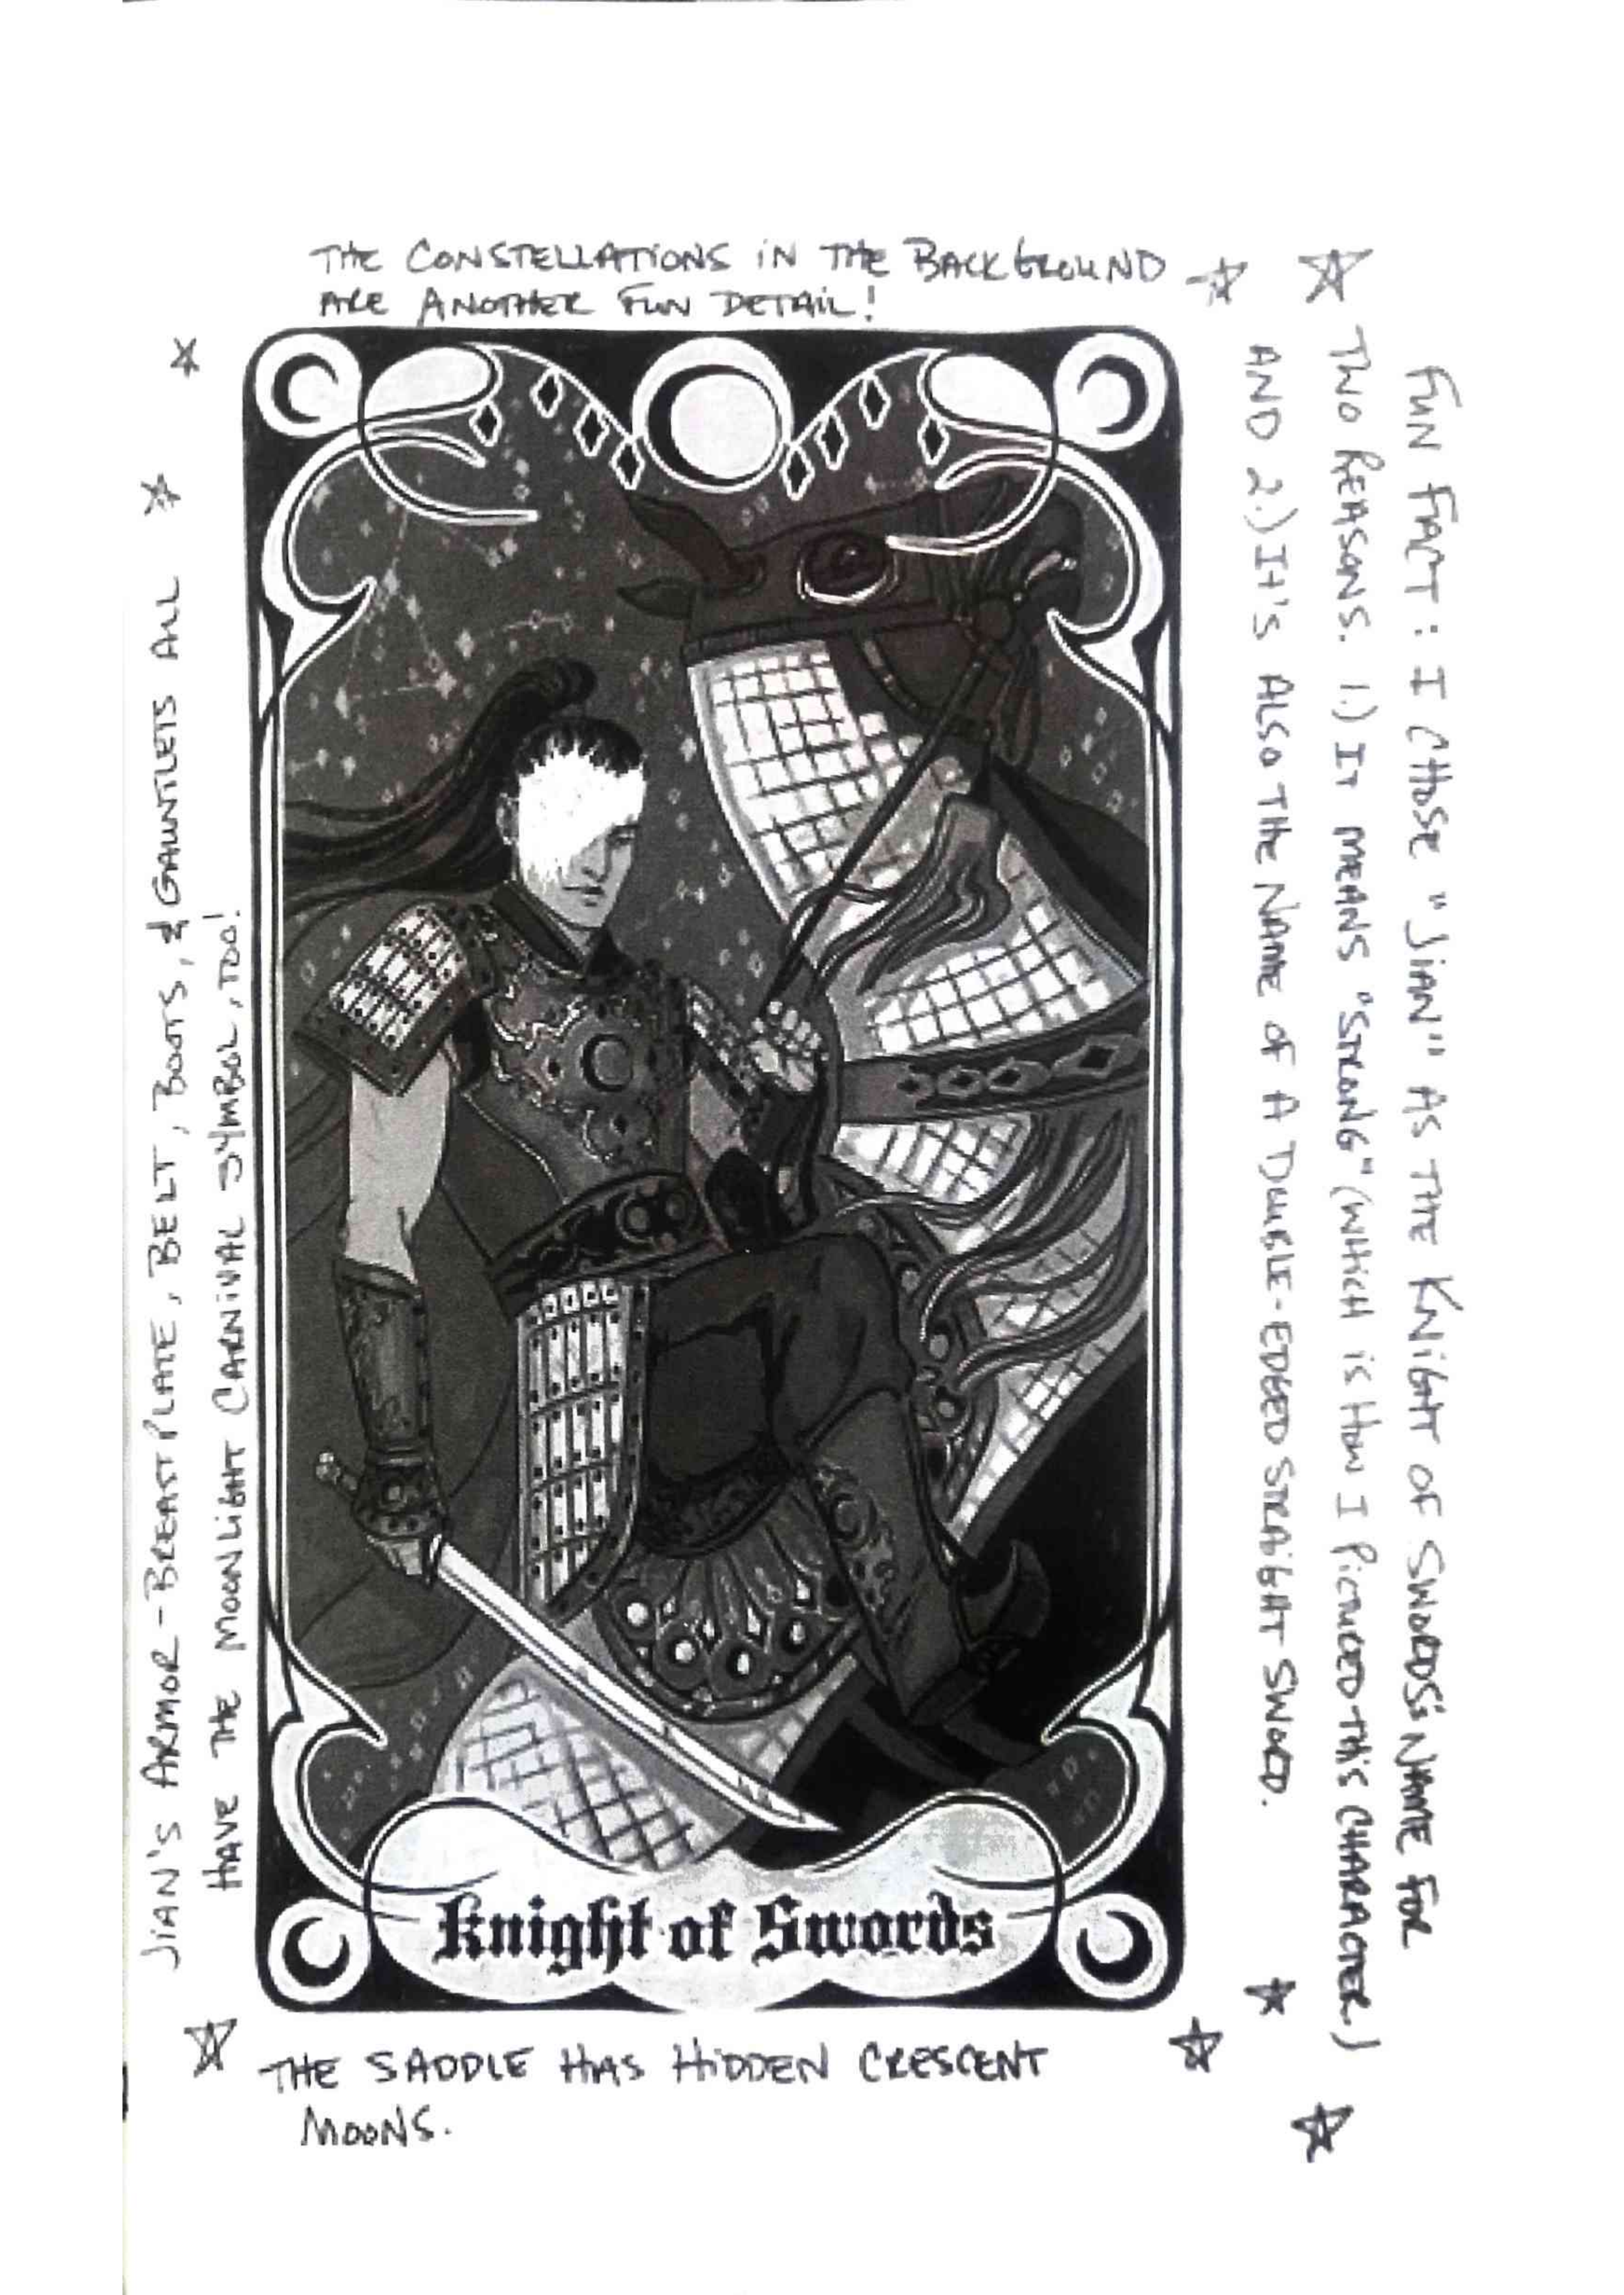 THE CONSTELLATIONS IN THE BACKGROUND
ARE ANOTHER FUN DETAIL!
JIAN'S ARMOR - BREASTPLATE, BELT, BOOTS, & GAUNTLETS ALL
HAVE THE MOONLIGHT CARNIVAL SYMBOL, TOO!
FUN FACT: I CHOSE "JIAN" AS THE KNIGHT OF SWORDS'S NAME FOR
TWO REASONS. 1.) IT MEANS "STRONG" (WHICH IS HOW I PICTURED THIS CHARACTER)
AND 2.) IT'S ALSO THE NAME OF A DOUBLE-EDGED STRAIGHT SWORD.
Knight of Swords
THE SADDLE HAS HIDDEN CRESCENT
MOONS.